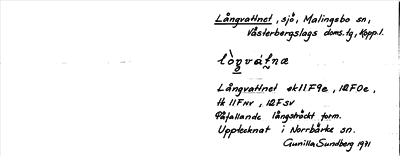 Långvattnet, sjö, Malingsbo sn,
Västerbergslags doms.tg, Kopp.l.
Långvattnet ek 11F9e, 12F0e,
tk 11FNV, 12FSV
Påfallande långsträckt form.
Upptecknat i Norrbärke sn.
Gunilla Sundberg 1971